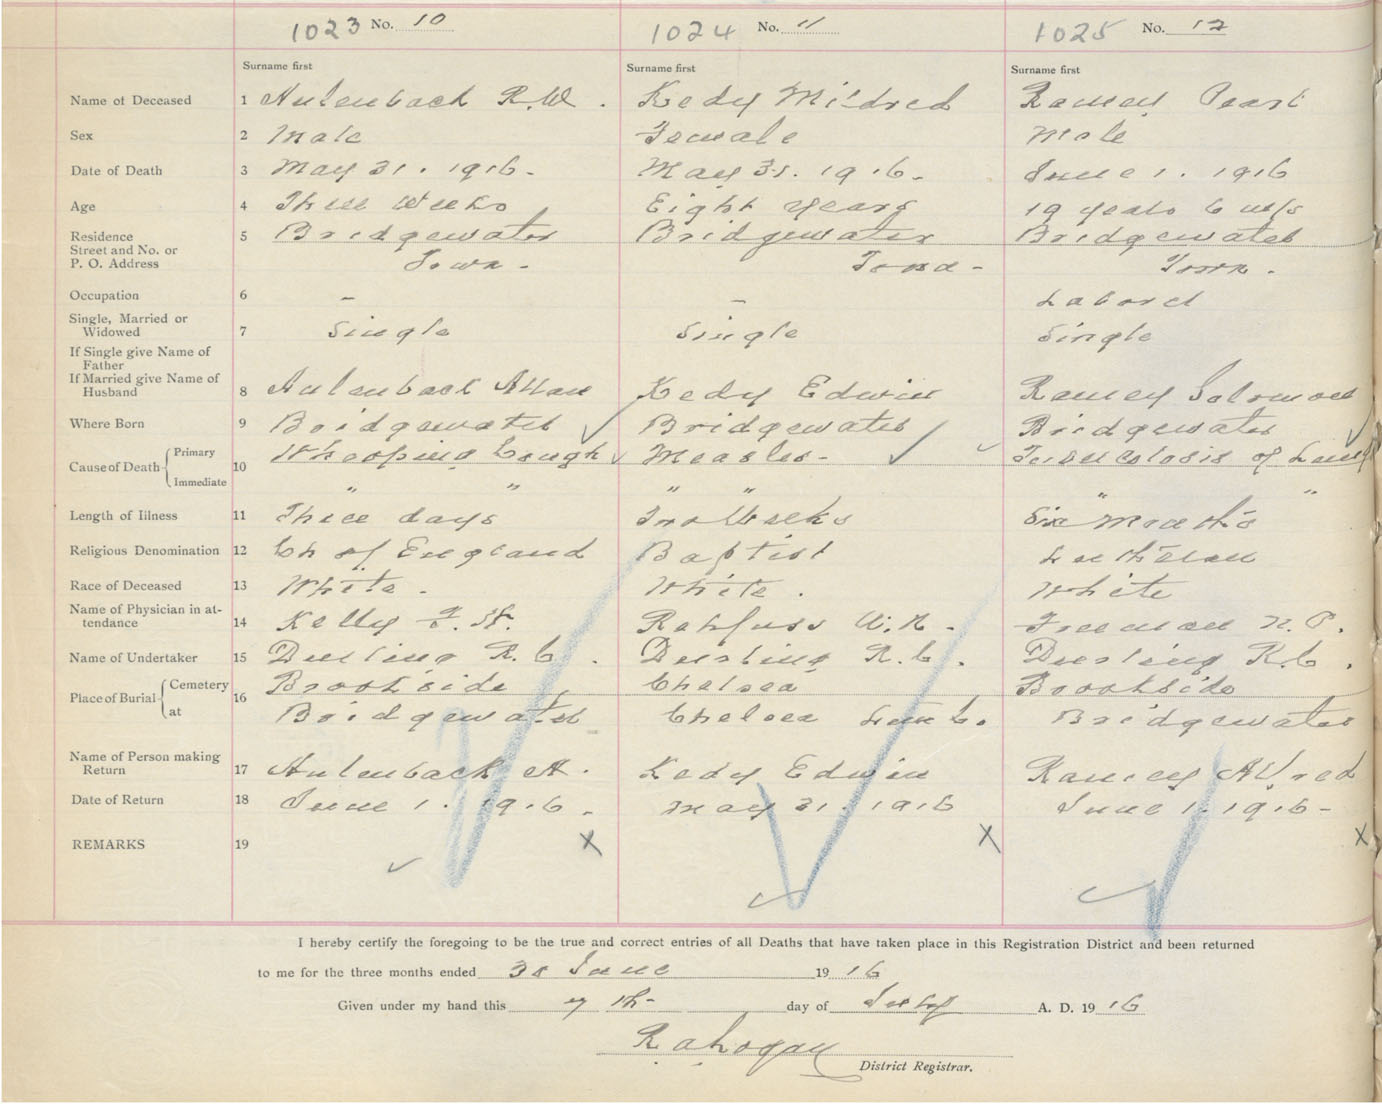 1023 No. 10 1024 No. 11 1025 No. 12
Surname first Surname first Surname first
Name of Deceased 1 Aulenback R.W. Kedy Mildred Ramey Pearl
Sex 2 Male Female Male
Date of Death 3 May 31. 1916. May 31. 1916. June 1. 1916
Age 4 Three Weeks Eight years 19 years 6 m/s
Residence 5 Bridgewater Bridgewater Bridgewater
Street and No. or
P. O. Address Town. Town. Town.
Occupation 6 – – Laborer
Single, Married or
Widowed 7 Single Single Single
If Single give Name of
Father
If Married give Name of
Husband 8 Aulenback Allan Kedy Edwin Ramey Solomon
Where Born 9 Bridgewater Bridgewater Bridgewater
Cause of Death Primary 10 Whooping Cough Measles - Tuberculosis of Lung
Immediate " " " " " "
Length of Illness 11 Three days Two Weeks Six Months
Religious Denomination 12 Ch of England Baptist Lutheran
Race of Deceased 13 White. White. White
Name of Physician in at-
tendance 14 Kelly Rehfuss W.N. Freeman N.P.
Name of Undertaker 15 Dursling R.C. Dursling R.C. Dursling R.C.
Place of Burial Cemetery 16 Brookside Chelsea Brookside
at Bridgewater Chelsea Lun Co. Bridgewater
Name of Person making
Return 17 Aulenback A. Kedy Edwin Ramey Alfred
Date of Return 18 June 1. 1916. May 31. 1916 June 1. 1916-
REMARKS 19 X X X
I hereby certify the foregoing to be the true and correct entries of all Deaths that have taken place in this Registration District and been returned
to me for the three months ended 30 June 1916
Given under my hand this 7th day of July A. D. 1916
District Registrar.